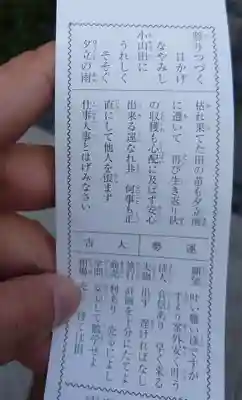 照りつづく
はかげ
なやみし
小山田に
うれしく
そそぐ
夕立の雨
枯れ果てた田の苗も夕立雨
に遭いて 再び生き返り秋
の収穫も心配に及ばず安心
出来る運なれ共 何事も正
直にして他人を恨まず
仕事大事とはげみなさい
運勢
大吉
願望 叶い難い様ですが
すまり案外安く叶う
待人 音信あり 早く来る
失物 出ず 遅ければなし
旅行 計画を十分にたてよ
商売 利あり 売るによし
学問 安心して勉学せよ
相場